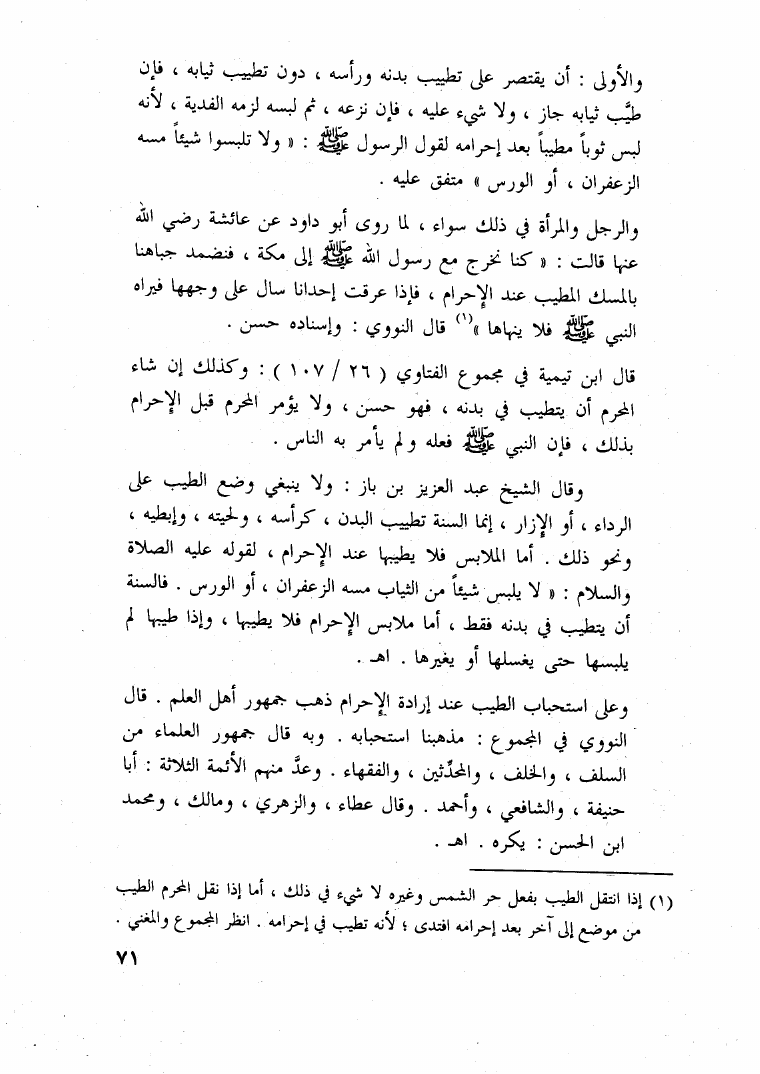 والأولى : أن يقتصر على تطييب بدنه ورأسه ، دون تطييب ثيابه ، فإن
طيَّب ثيابه جاز ، ولا شيء عليه ، فإن نزعه ، ثم لبسه لزمه الفدية ، لأنه
لبس ثوباً مطيباً بعد إحرامه لقول الرسول ﷺ : « ولا تلبسوا شيئاً مسه
الزعفران ، أو الورس » متفق عليه .
والرجل والمرأة في ذلك سواء ، لما روى أبو داود عن عائشة رضي الله
عنها قالت : « كنا نخرج مع رسول الله ﷺ إلى مكة ، فنضمد جباهنا
بالمسك المطيب عند الإحرام ، فإذا عرقت إحدانا سال على وجهها فيراه
النبي ﷺ فلا ينهاها »(١) قال النووي : وإسناده حسن .
قال ابن تيمية في مجموع الفتاوي ( ٢٦ / ١٠٧ ) : وكذلك إن شاء
المحرم أن يتطيب في بدنه ، فهو حسن ، ولا يؤمر المحرم قبل الإحرام
بذلك ، فإن النبي ﷺ فعله ولم يأمر به الناس .
وقال الشيخ عبد العزيز بن باز : ولا ينبغي وضع الطيب على
الرداء ، أو الإزار ، إنما السنة تطييب البدن ، كرأسه ، ولحيته ، وإبطيه ،
ونحو ذلك . أما الملابس فلا يطيبها عند الإحرام ، لقوله عليه الصلاة
والسلام : « لا يلبس شيئاً من الثياب مسه الزعفران ، أو الورس . فالسنة
أن يتطيب في بدنه فقط ، أما ملابس الإحرام فلا يطيبها ، وإذا طيبها لم
يلبسها حتى يغسلها أو يغيرها . اهـ .
وعلى استحباب الطيب عند إرادة الإحرام ذهب جمهور أهل العلم . قال
النووي في المجموع : مذهبنا استحبابه . وبه قال جمهور العلماء من
السلف ، والخلف ، والمحدِّثين ، والفقهاء . وعدَّ منهم الأئمة الثلاثة : أبا
حنيفة ، والشافعي ، وأحمد . وقال عطاء ، والزهري ، ومالك ، ومحمد
ابن الحسن : يكره . اهـ .
(١) إذا انتقل الطيب بفعل حر الشمس وغيره لا شيء في ذلك ، أما إذا نقل المحرم الطيب
من موضع إلى آخر بعد إحرامه افتدى ؛ لأنه تطيب في إحرامه . انظر المجموع والمغني .
٧١